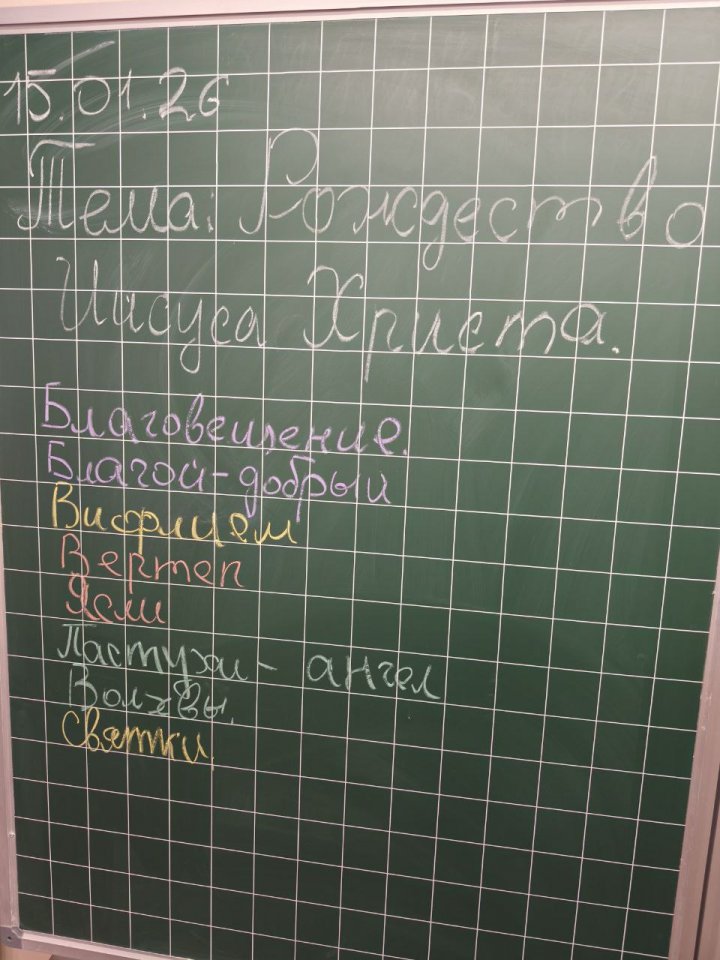 15.01.26
Тема: Рождество
Иисуса Христа.
Благовещение.
Благой-добрый
Вифлием
Вертеп
Ясли
Пастухи - ангел
Волхвы.
Святки.